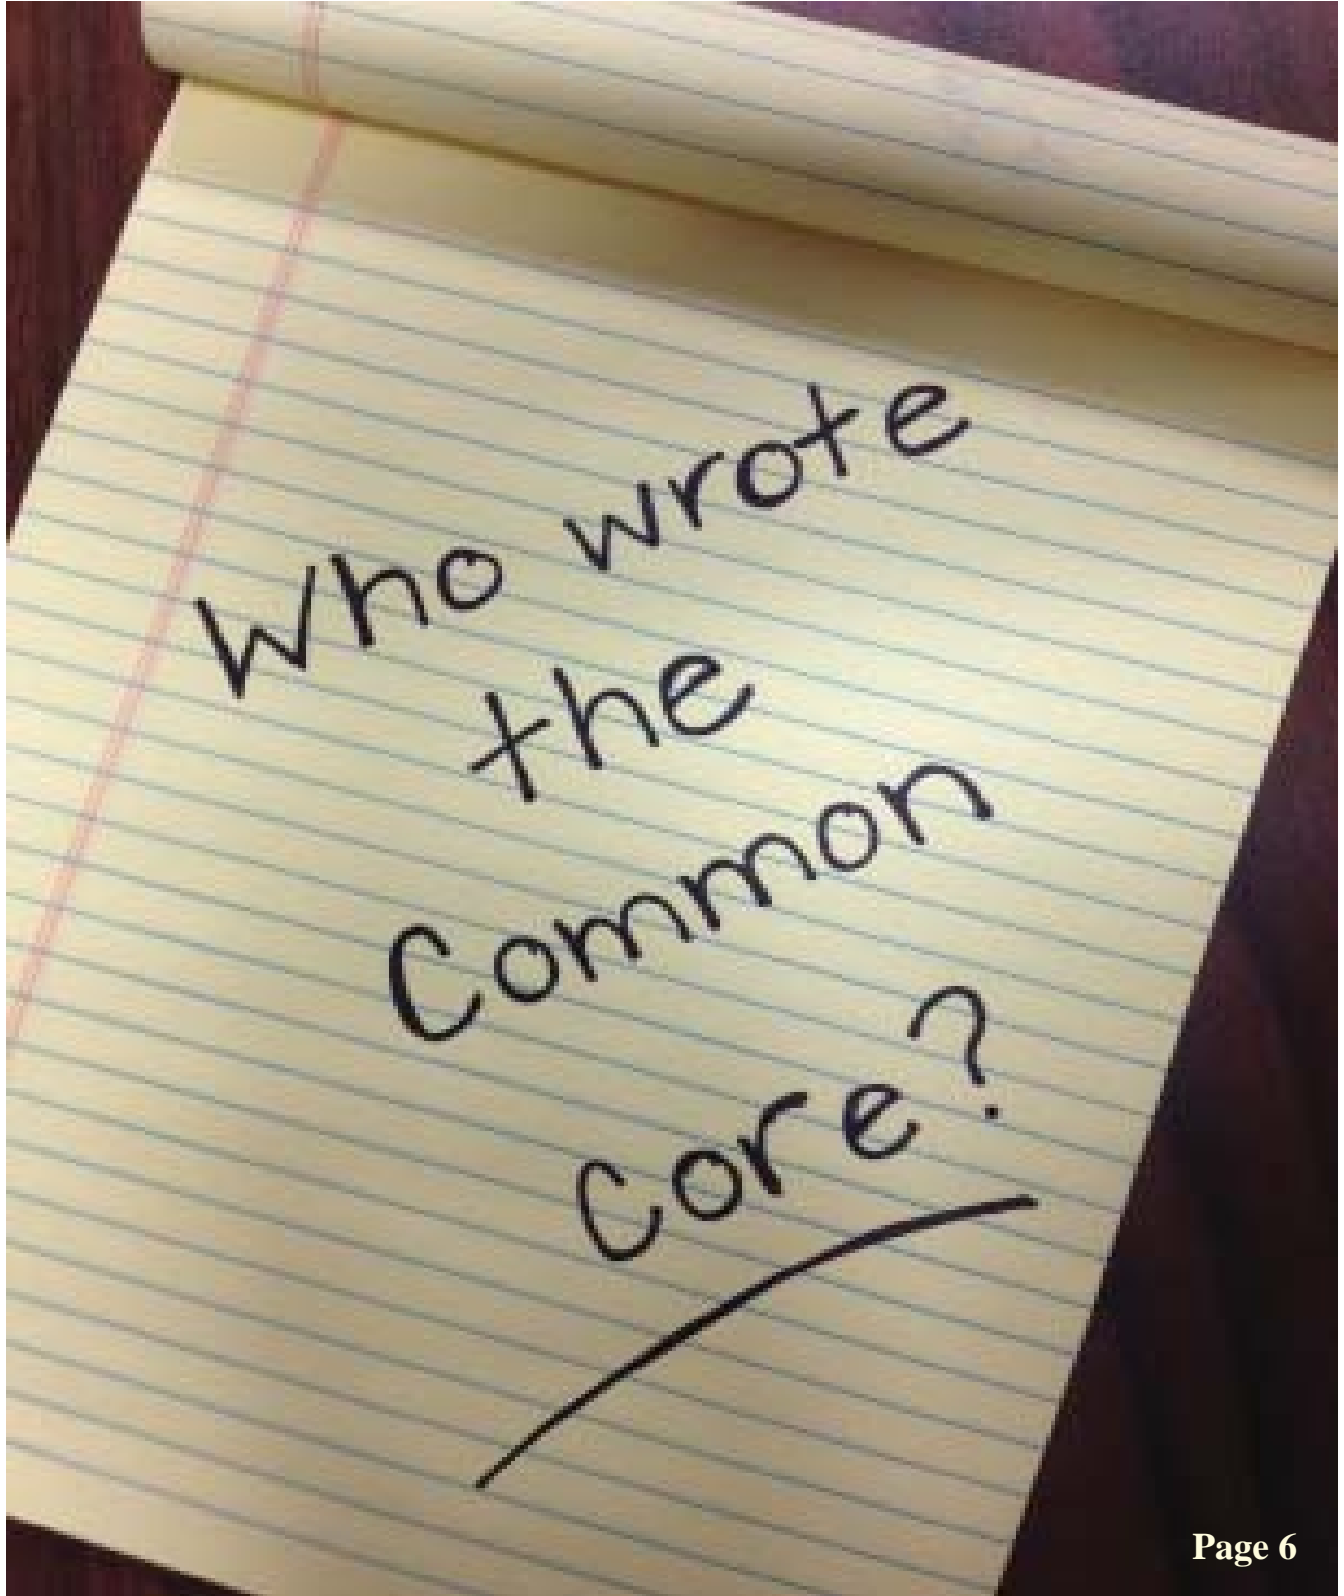 Who wrote
the
Common
Core?
Page 6